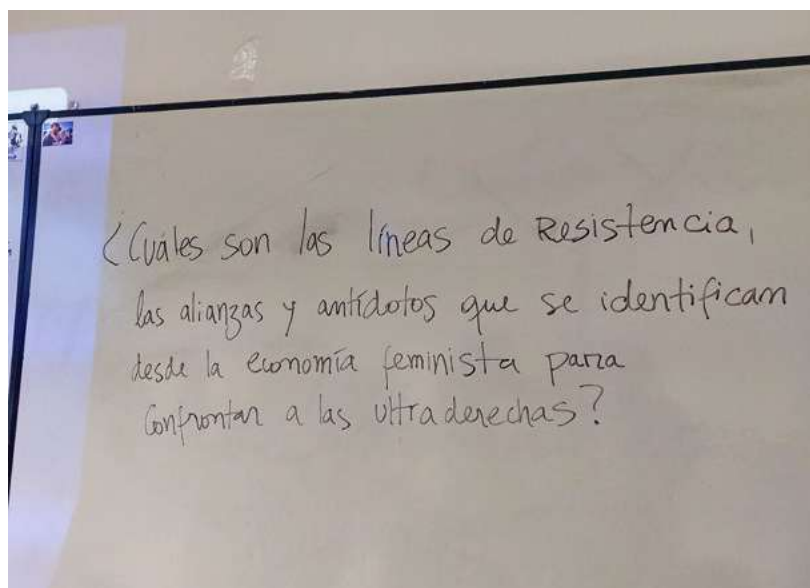 ¿Cuáles son las líneas de Resistencia,
las alianzas y antídotos que se identifican
desde la economía feminista para
confrontar a las ultraderechas?